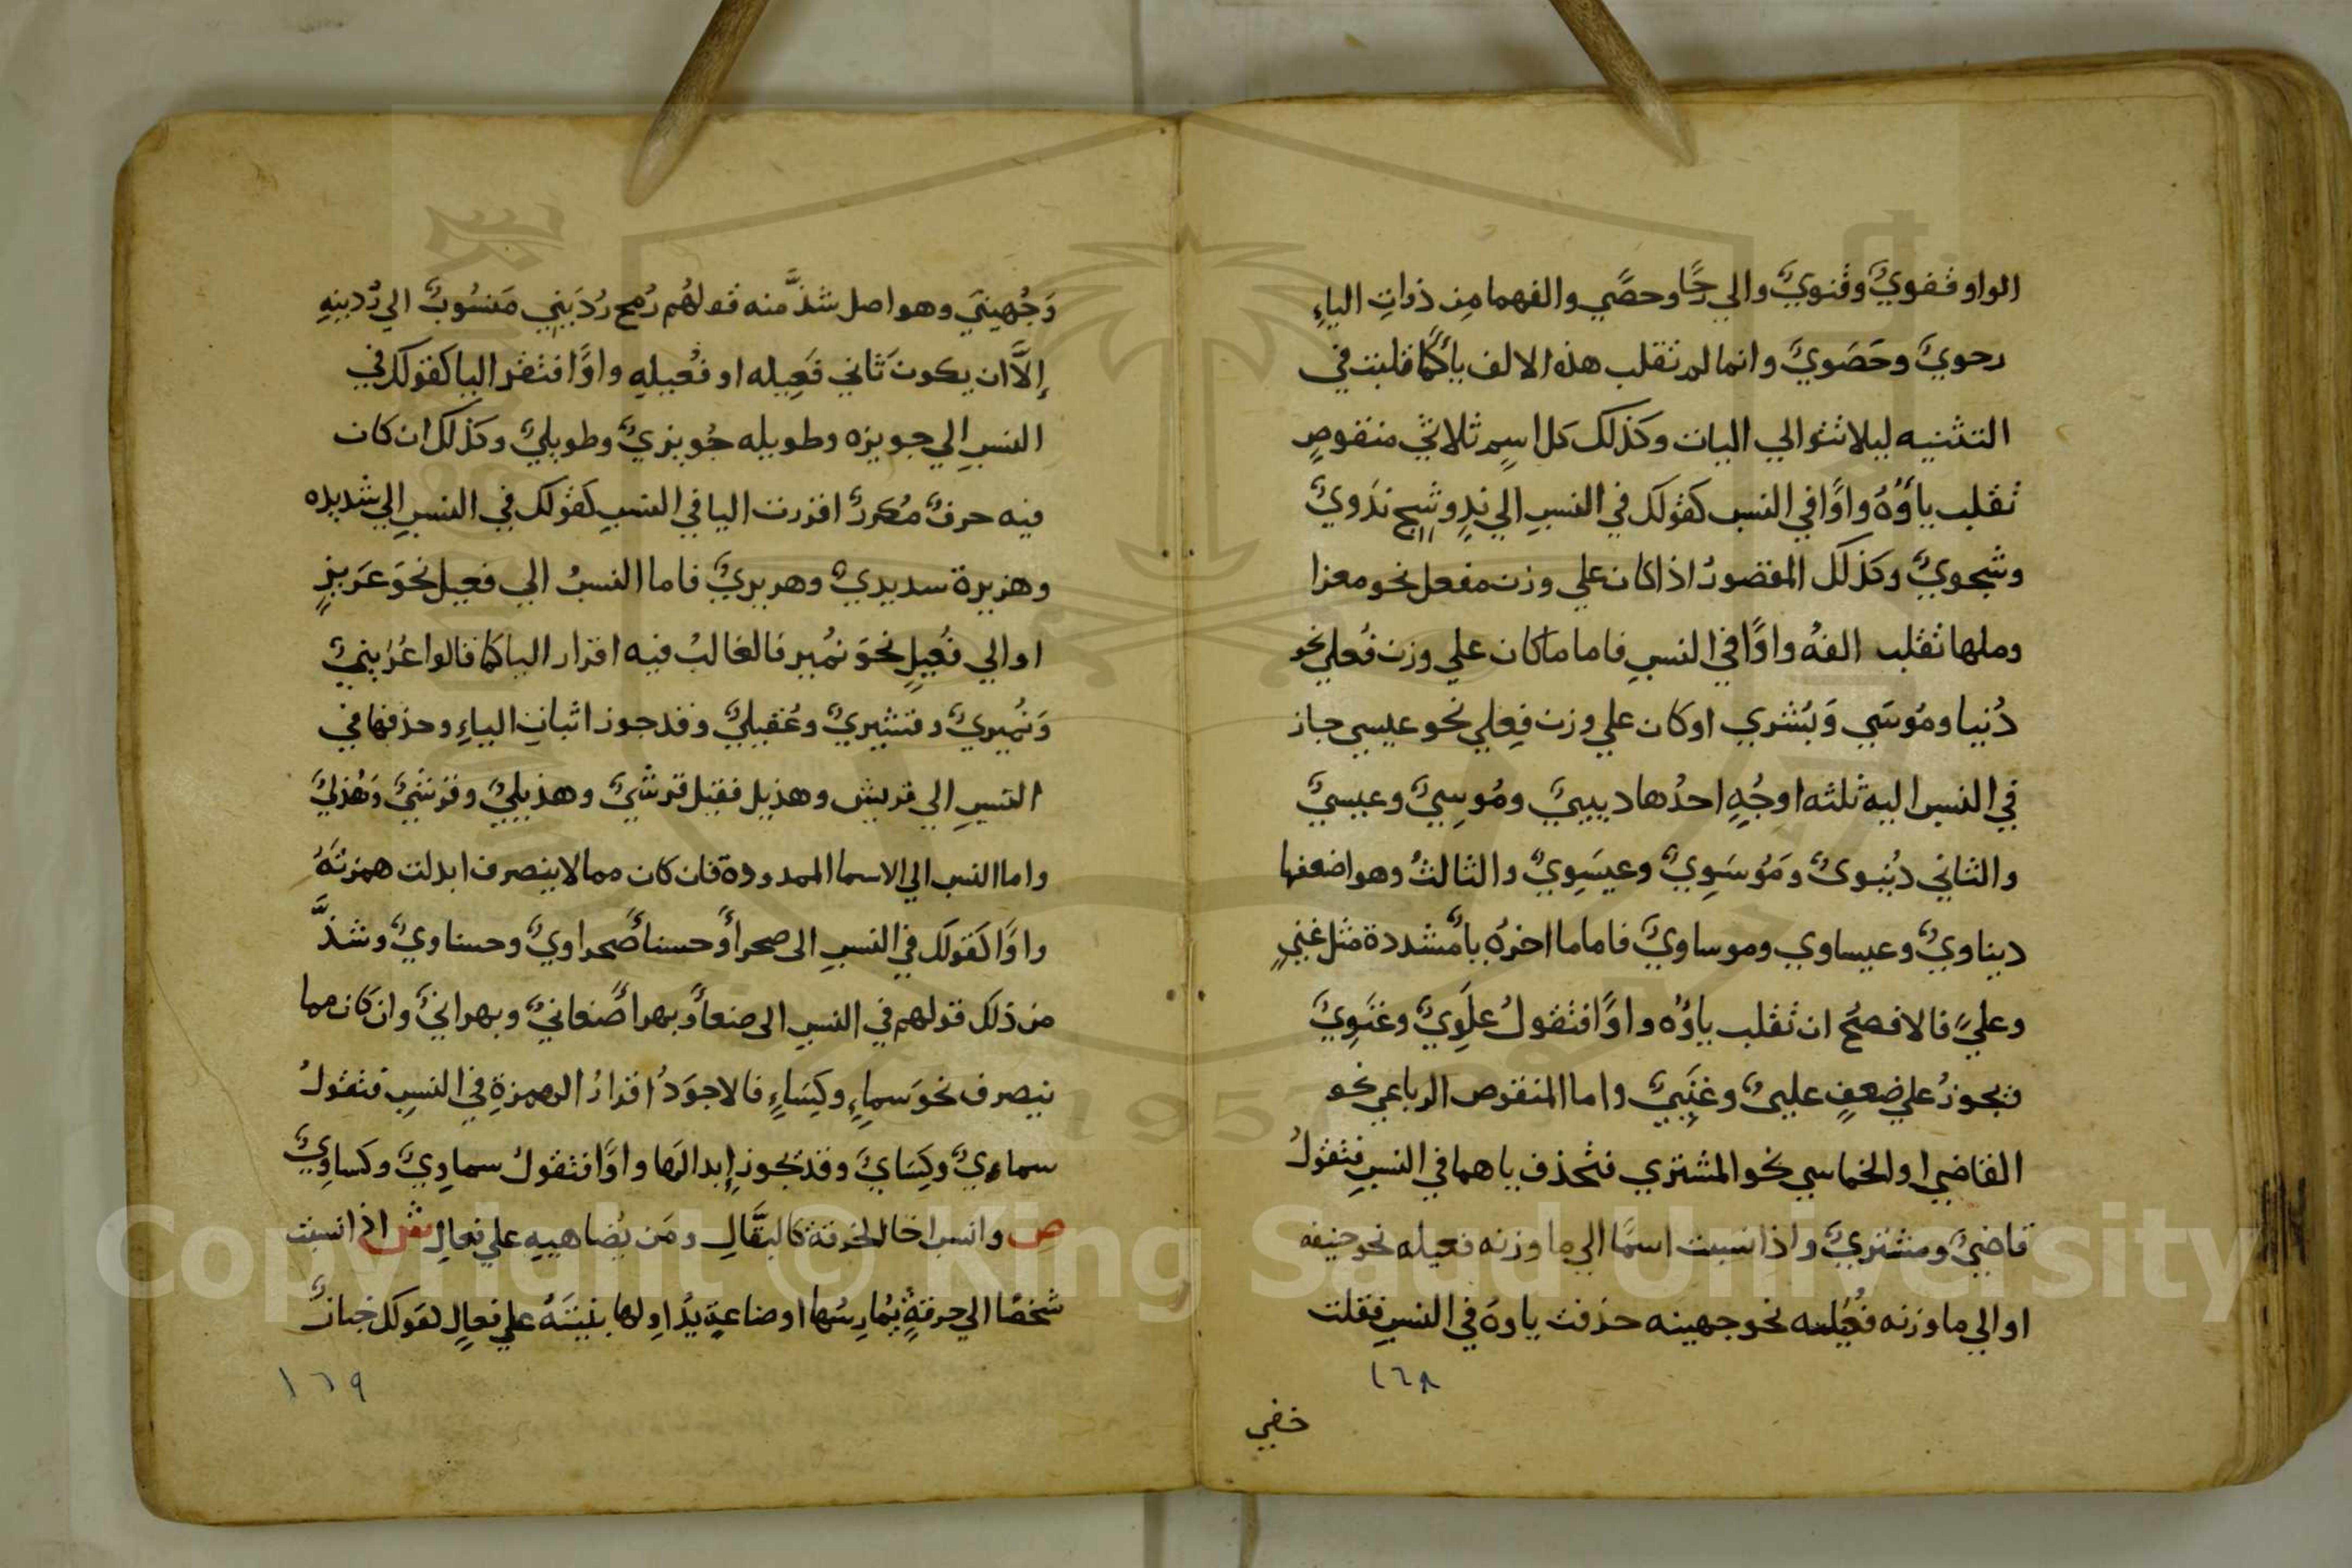 الواو قفويٌّ وقنويٌّ والي رحًا وحصًي والفهما من ذوات الياءِ
رحويٌّ وحَصَويٌّ وانما لم تقلب هذه الالف ياءً كما قلبت في
التثنيه ليلا تتوالي اليات وكذلك كل اسمٍ ثلاثيٍ منقوصٍ
تقلب ياؤُهُ واوًا في النسب كقولك في النسبِ الي ندٍ وشجٍ ندَويٌّ
وشجويٌّ وكذلك المقصورُ اذا كان علي وزن مفعل نحو مغزا
وملها تقلب الفهُ واوًا في النسبِ فاما ما كان علي وزن فُعلي نحو
دُنيا ومُوسَي وَبُشري او كان علي وزن فِعلي نحو عيسي جاز
في النسب اليه ثلثه اوجُهٍ احدُها دنييٌّ ومُوسِيٌّ وعيسيٌّ
والثاني دُنيويٌّ ومُوسَوِيٌّ وعيسَوِيٌّ والثالثُ وهو اضعفها
دنياويٌّ وعيساوي وموساويٌّ فاما ما اخرُه ياءٌ مشددة مثل غنيٍ
وعليٍّ فالافصحُ ان تقلب ياؤُه واوًا فتقولُ علَوِيٌّ وغنَوِيٌّ
فيجوزُ علي ضعفٍ علييٌّ وغنِييٌّ واما المنقوص الرباعي نحو
القاضي او الخماسي نحو المشتري فتحذف ياهما في النسبِ فتقولُ
قاضيٌّ ومشتريٌّ واذا نسبت اسمًا الي ما وزنه فعيله نحو حنيفه
او الي ما وزنه فُعَيله نحو جهينه حذفت ياوهُ في النسبِ فقلت
١٦٨
وَجُهينيّ وهو اصل شذَّ منه قولهُم رُمح رُدَيني مَنسُوبٌ الي رُدينهِ
إلَّا ان يكون ثاني فَعِيله او فُعيلهِ واوًا فتقر اليا كقولك في
النسبِ الي جويزه وطويله جُويزيٌّ وطويليٌّ وكذلك ان كان
فيه حرفٌ مُكررٌ اقررت اليا في النسبِ كقولك في النسبِ الي شديده
وهزيرة سديديٌّ وهريريٌّ فاما النسبُ الي فعيل نحوَ عَزيزٍ
او الي فُعيلٍ نحوَ نُمير فالغالبُ فيه اقرار اليا كما قالوا عُرَينيٌّ
وَنُميريٌّ وقشيريٌّ وعُقيليٌّ وقد جوز اثبات الياءِ وحذفها في
النسبِ الي قريش وهذيل فقيل قرشيٌّ وهذيليٌّ وقرشيٌّ وَهُذليٌّ
واما النسب الي الاسما الممدودة فان كان مما لا ينصرف ابدلت همزتَهُ
واوًا كقولك في النسبِ الى صحراءَ وحسناءَ صحراويٌّ وحسناويٌّ وشذَّ
من ذلك قولهم في النسبِ الى صنعاءَ وبهراءَ صنعانيٌّ وبهرانيٌّ وان كان مما
ينصرف نحو سماءٍ وكِسَاءٍ فالاجوَدُ اقرارُ الهمزةِ في النسبِ فتقولُ
سماءيٌّ وكِسَايٌّ وقد يجوز إبدالها واوًا فتقولُ سماوِيٌّ وكساوِيٌّ
ص وانسب اخا الحرفة كالبقَّالِ ومَن يُضاهييهِ علي فعالِ ش اذا نسبت
شخصًا الي حرفةٍ يُمارِسُها او صناعةٍ يدًا اولها بنيتَهُ علي فعالٍ لقولك خبازٌ
١٦٩
Copyright © King Saud University
1957